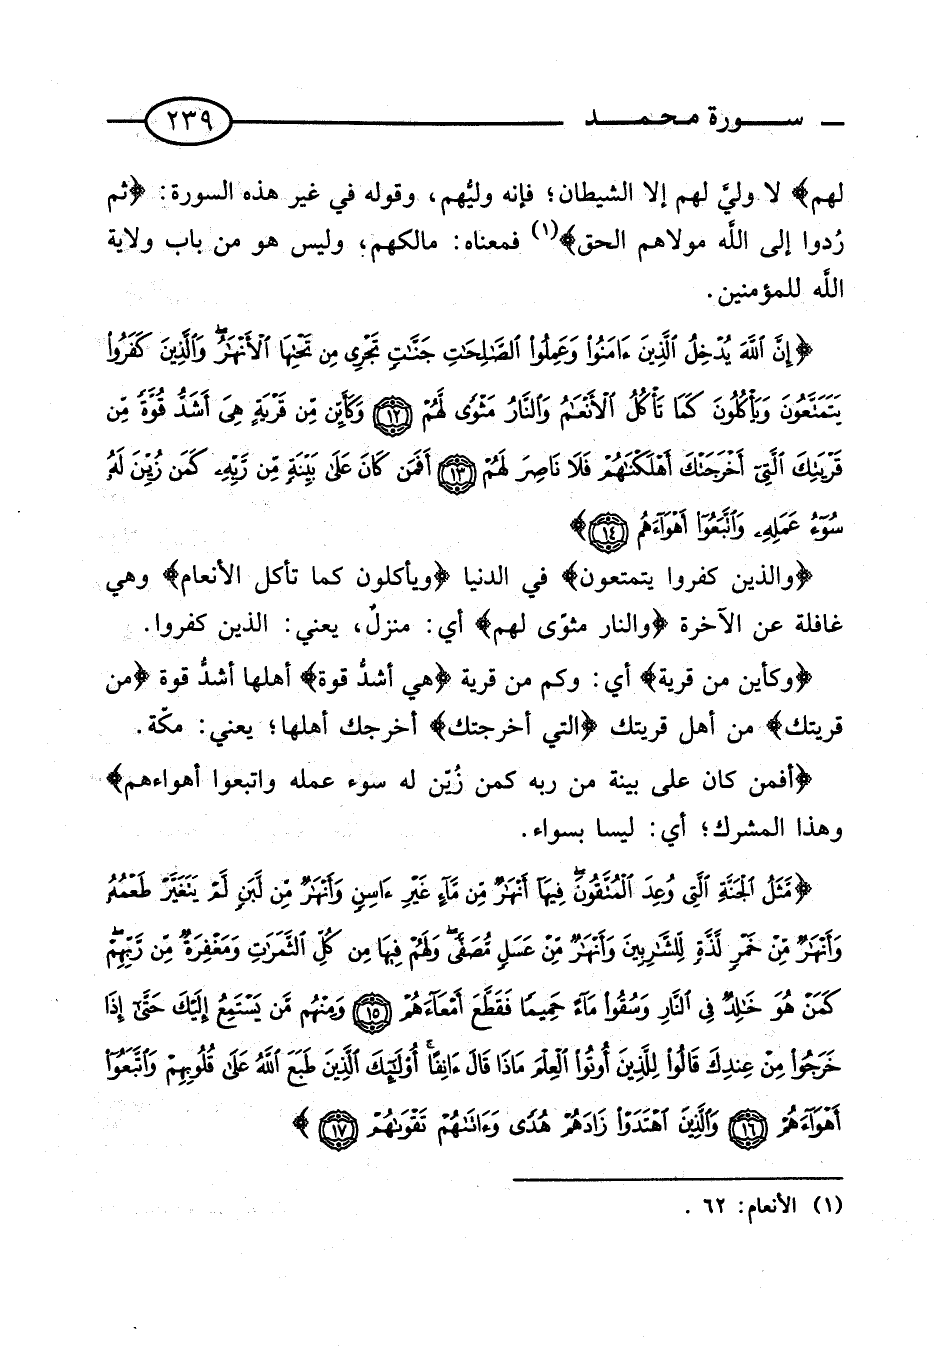 سورة محمد ٢٣٩
لهم﴾ لا وليَّ لهم إلا الشيطان؛ فإنه وليُّهم، وقوله في غير هذه السورة: ﴿ثم
رُدوا إلى اللَّه مولاهم الحق﴾(١) فمعناه: مالكهم؛ وليس هو من باب ولاية
اللَّه للمؤمنين.
﴿إِنَّ ٱللَّهَ يُدۡخِلُ ٱلَّذِينَ ءَامَنُواْ وَعَمِلُواْ ٱلصَّـٰلِحَـٰتِ جَنَّـٰتٍ تَجۡرِي مِن تَحۡتِهَا ٱلۡأَنۡهَـٰرُۖ وَٱلَّذِينَ كَفَرُواْ
يَتَمَتَّعُونَ وَيَأۡكُلُونَ كَمَا تَأۡكُلُ ٱلۡأَنۡعَـٰمُ وَٱلنَّارُ مَثۡوًى لَّهُمۡ ١٢ وَكَأَيِّن مِّن قَرۡيَةٍ هِيَ أَشَدُّ قُوَّةً مِّن
قَرۡيَتِكَ ٱلَّتِيٓ أَخۡرَجَتۡكَ أَهۡلَكۡنَـٰهُمۡ فَلَا نَاصِرَ لَهُمۡ ١٣ أَفَمَن كَانَ عَلَىٰ بَيِّنَةٍ مِّن رَّبِّهِۦ كَمَن زُيِّنَ لَهُۥ
سُوٓءُ عَمَلِهِۦ وَٱتَّبَعُوٓاْ أَهۡوَآءَهُم ١٤﴾
﴿والذين كفروا يتمتعون﴾ في الدنيا ﴿ويأكلون كما تأكل الأنعام﴾ وهي
غافلة عن الآخرة ﴿والنار مثوًى لهم﴾ أي: منزلٌ، يعني: الذين كفروا.
﴿وكأين من قرية﴾ أي: وكم من قرية ﴿هي أشدُّ قوة﴾ أهلها أشدُّ قوة ﴿من
قريتك﴾ من أهل قريتك ﴿التي أخرجتك﴾ أخرجك أهلها؛ يعني: مكّة.
﴿أفمن كان على بينة من ربه كمن زُيّن له سوء عمله واتبعوا أهواءهم﴾
وهذا المشرك؛ أي: ليسا بسواء.
﴿مَّثَلُ ٱلۡجَنَّةِ ٱلَّتِي وُعِدَ ٱلۡمُتَّقُونَۖ فِيهَآ أَنۡهَـٰرٌ مِّن مَّآءٍ غَيۡرِ ءَاسِنٍ وَأَنۡهَـٰرٌ مِّن لَّبَنٍ لَّمۡ يَتَغَيَّرۡ طَعۡمُهُۥ
وَأَنۡهَـٰرٌ مِّنۡ خَمۡرٍ لَّذَّةٍ لِّلشَّـٰرِبِينَ وَأَنۡهَـٰرٌ مِّنۡ عَسَلٍ مُّصَفًّىۖ وَلَهُمۡ فِيهَا مِن كُلِّ ٱلثَّمَرَٰتِ وَمَغۡفِرَةٌ مِّن رَّبِّهِمۡۖ
كَمَنۡ هُوَ خَـٰلِدٌ فِي ٱلنَّارِ وَسُقُواْ مَآءً حَمِيمًا فَقَطَّعَ أَمۡعَآءَهُمۡ ١٥ وَمِنۡهُم مَّن يَسۡتَمِعُ إِلَيۡكَ حَتَّىٰٓ إِذَا
خَرَجُواْ مِنۡ عِندِكَ قَالُواْ لِلَّذِينَ أُوتُواْ ٱلۡعِلۡمَ مَاذَا قَالَ ءَانِفًاۚ أُوْلَـٰٓئِكَ ٱلَّذِينَ طَبَعَ ٱللَّهُ عَلَىٰ قُلُوبِهِمۡ وَٱتَّبَعُوٓاْ
أَهۡوَآءَهُمۡ ١٦ وَٱلَّذِينَ ٱهۡتَدَوۡاْ زَادَهُمۡ هُدًى وَءَاتَىٰهُمۡ تَقۡوَىٰهُمۡ ١٧ ﴾
(١) الأنعام: ٦٢ .